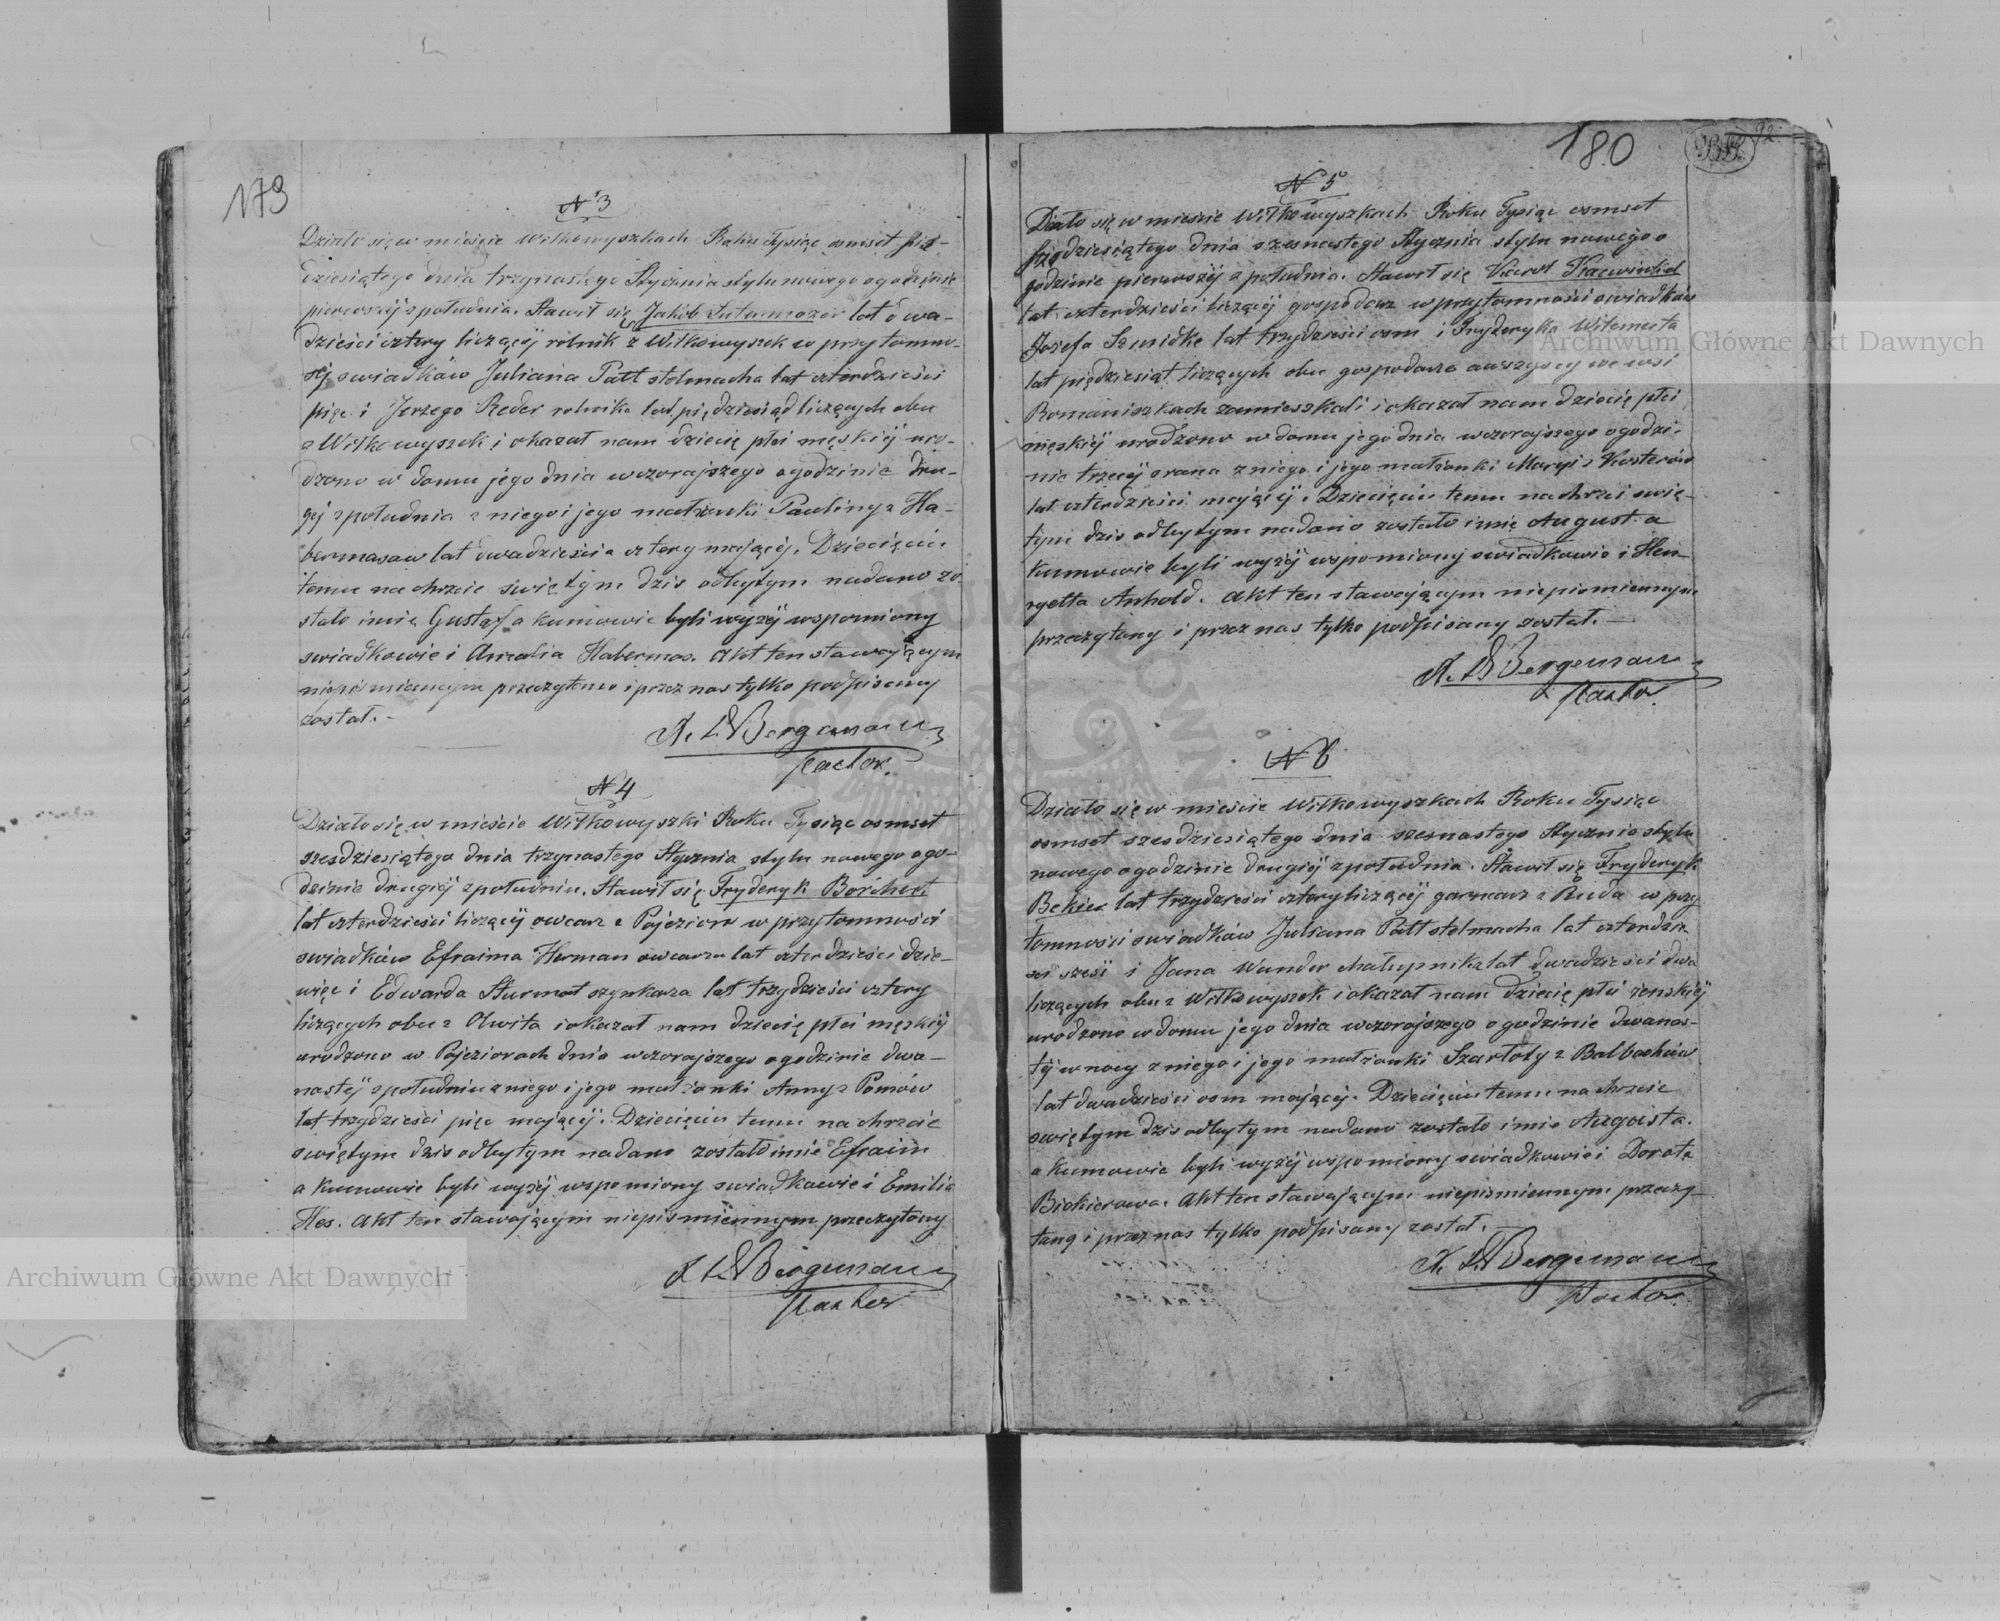 179
N 3
Działo się w mieście Wiłkowyszkach Roku Tysiąc osmset
dziesiątego dnia trzynastego Stycznia stylu nowego o godzinie
pierwszéj z południa. Stawił się Jakób lat dwa-
dzieści cztery liczący rolnik z Wiłkowyszek w przytomno-
ści swiadków Juliana Patt stelmacha lat czterdzieści
pięć i Jerzego Reder rolnika lat piędziesiąd liczących obu
z Wiłkowyszek i okazał nam dziecię płci męskiéj uro-
dzone w domu jego dnia wczorajszego o godzinie dru-
giéj z południa z niego i jego małżonki Pauliny z Ha-
bermasow lat dwadzieścia cztery mającéj. Dziecięciu
temu na chrzcie swiętym dzis odbytym nadano zo
stało imię Gustaf a kumowie byli wyżéj wspomiony
swiadkowie i Amalia Habermas. Akt ten stawającym
niepismiennym przeczytano i przez nas tylko podpisany
został.-
Bergemann
Pastor.
N 4
Działo się w mieście Wiłkowyszki Roku Tysiąc osmset
szesdziesiątego dnia trzynastego Stycznia stylu nowego o go-
dzinie drugiéj z południu. Stawił się Fryderyk Borchert
lat czterdzieści liczący owcarz z Pojezior w przytomności
swiadków Efraima Herman owcarza lat czterdzieści dzie-
więc i Edwarda Sturmat szynkarza lat trzydzieści cztery
liczących obu z Olwita i okazał nam dziecię płci męzkiéj
urodzono w Pojeziorach dnia wczorajszego o godzinie dwa-
nastéj z południu z niego i jego małżonki Anny z Pomów
lat trzydzieści pięc mającéj. Dziecięciu temu na chrzcie
swiętym dzis odbytym nadano zostało imie Efraim
a kumowie byli wyżéj wspomiony swiadkowie i Emilia
Hes. Akt ten stawającym niepismiennym przeczytany
Bergemann
Pastor
180
92
N 5
Działo się w mieście Wiłkowyszkach Roku Tysiąc osmset
dziesiątego dnia szesnastego Stycznia stylu nowego o
godzinie pierwszéj z południa. Stawił się Karol
lat czterdzieści liczący gospodarz w przytomności swiadków
Józefa Szmidke lat trzydzieści osm i Fryderyka
lat pięddziesiąt liczących obu gospodarze wszyscy we wsi
Romaniszkach zamieszkali i okazał nam dziecię płci
męskiéj urodzono w domu jego dnia wczorajszego o godzi-
nie trzeciéj z rana z niego i jego małżonki Maryi z Kosterów
lat czterdzieści mającéj. Dziecięciu temu na chrzci swię-
tym dzis odbytym nadano zostało imię August. a
kumowie byli wyżéj wspomiony swiadkowie i Hen-
ryetta Anhold. Akt ten stawającym niepismiennym
przeczytany i przez nas tylko podpisany został.—
Bergemann
Pastor.
N 6
Działo się w mieście Wiłkowyszkach Roku Tysiąc
osmset szesdziesiątego dnia szesnastego Stycznia stylu
nowego o godzinie drugiéj z południa. Stawił się Fryderyk
Bekier lat trzydzieści cztery liczący garncarz z Ruda w przy
tomności swiadków Juliana Patt stelmacha lat czterdzie
sci szesć i Jana Wunder chałupnika lat dwadzieści dwa
liczących obu z Wiłkowyszek i okazał nam dziecię płci żenskiéj
urodzono w domu jego dnia wczorajszego o godzinie dwanas-
téj w nocy z niego i jego małżonki Szarloty z Balbachów
lat dwadzieści osm mającéj. Dziecięciu temu na chrzcie
swiętym dzis odbytym nadano zostało imie Augusta.
a kumowie byli wyżéj wspomiony swiadkowie i Dorota
Biekierowa. Akt ten stawającym niepismiennym przeczy-
tany i przez nas tylko podpisany został.—
Bergemann
Pastor.
Archiwum Główne Akt Dawnych
Archiwum Główne Akt Dawnych